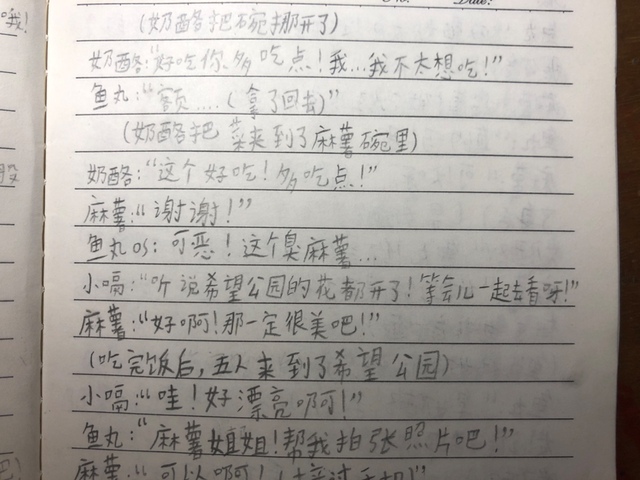 Date:
哦!
(奶酪把碗挪开了)
奶酪:“好吃你多吃点!我...我不太想吃!”
鱼丸:“额....(拿了回去)”
(奶酪把菜夹到了麻薯碗里)
奶酪:“这个好吃!多吃点!”
麻薯:“谢谢!”
鱼丸OS:可恶!这个臭麻薯...
小嗝:“听说希望公园的花都开了!等会儿一起去看呀!”
麻薯:“好啊!那一定很美吧!”
(吃完饭后,五人来到了希望公园)
小嗝:“哇!好漂亮啊!”
鱼丸:“麻薯姐姐!帮我拍张照片吧!”
麻薯:“可以啊!(接过手机)”